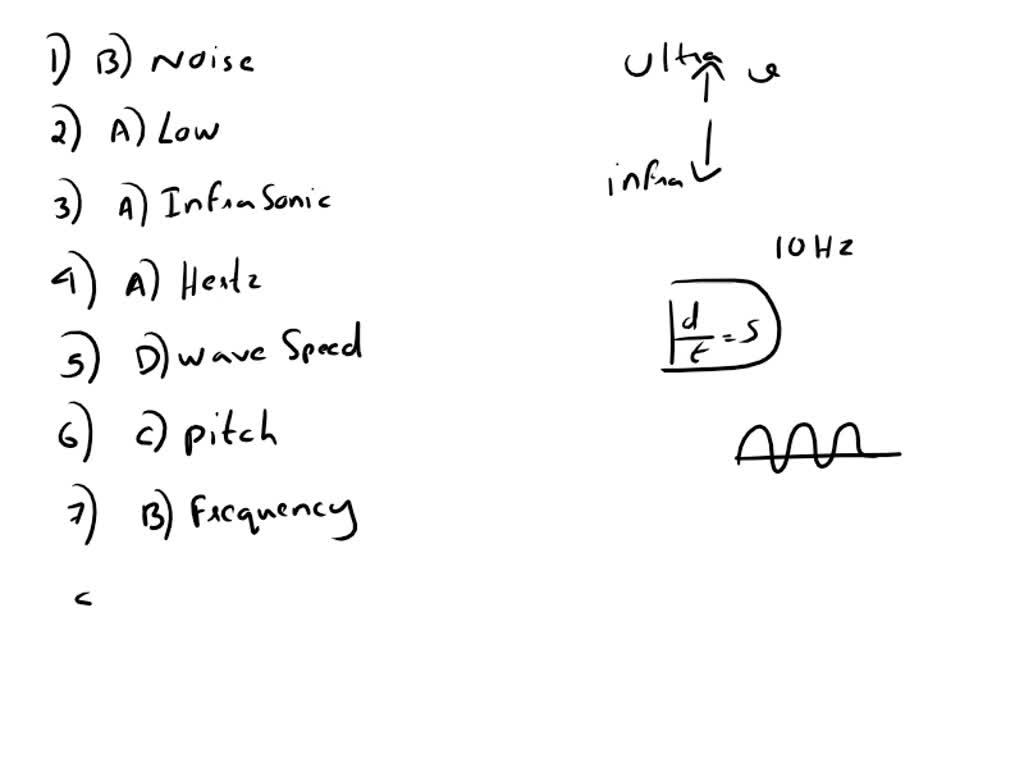 1) B) Noise
2) A) Low
3) A) InfraSonic
4) A) Hertz
5) D) wave Speed
6) C) pitch
7) B) Frequency
Ultra
infra
10 Hz
d/t = s